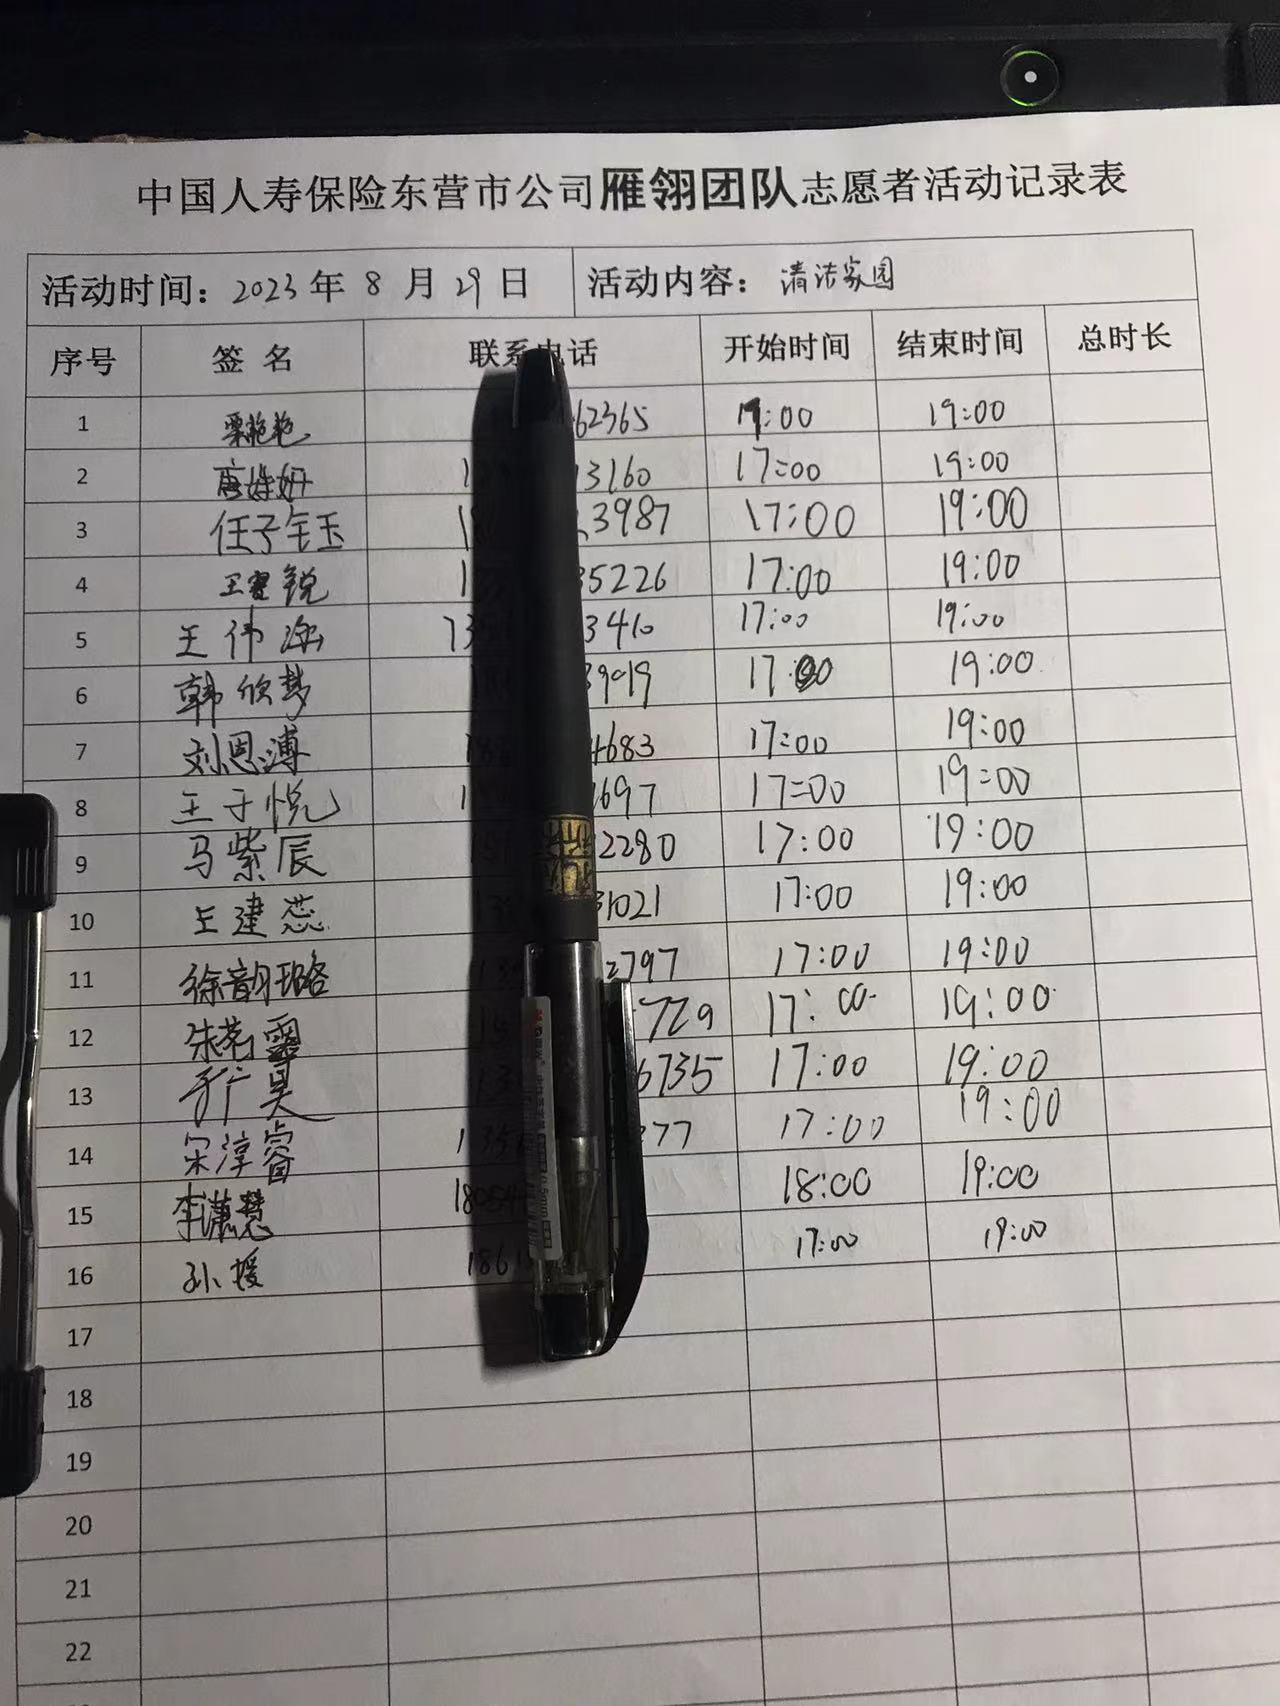 中国人寿保险东营市公司雁翎团队志愿者活动记录表
活动时间：2023年8月29日 活动内容：清洁家园
序号 签名 联系电话 开始时间 结束时间 总时长
1 栗艳艳 62365 17:00 19:00
2 3160 17:00 19:00
3 任子钰玉 3987 17:00 19:00
4 王赛锐 35226 17:00 19:00
5 王伟 3410 17:00 19:00
6 韩欣梦 17:00 19:00
7 刘恩溥 4683 17:00 19:00
8 王子悦 697 17:00 19:00
9 马紫辰 2280 17:00 19:00
10 王建蕊 31021 17:00 19:00
11 徐韵璐 2797 17:00 19:00
12 朱茗霏 729 17:00 19:00
13 昊 6735 17:00 19:00
14 宋淳睿 1350 377 17:00 19:00
15 李潇慧 18054 18:00 19:00
16 孙媛 1861 17:00 19:00
17
18
19
20
21
22